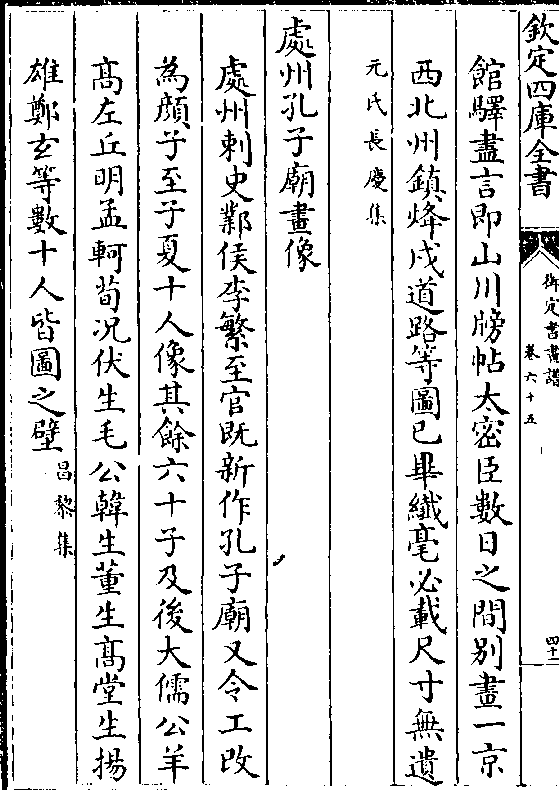 欽定四庫全書
御定書畫譜
卷六十五
四十一
館驛盡言即山川牓帖太密臣數日之間别畫一京
西北州鎮烽戍道路等圖已畢纎毫必載尺寸無遺
元氏長慶集
處州孔子廟畫像
處州刺史鄴侯李繁至官既新作孔子廟又令工改
為顔子至子夏十人像其餘六十子及後大儒公羊
髙左丘明孟軻荀况伏生毛公韓生董生髙堂生揚
雄鄭玄等數十人皆圖之壁昌黎集